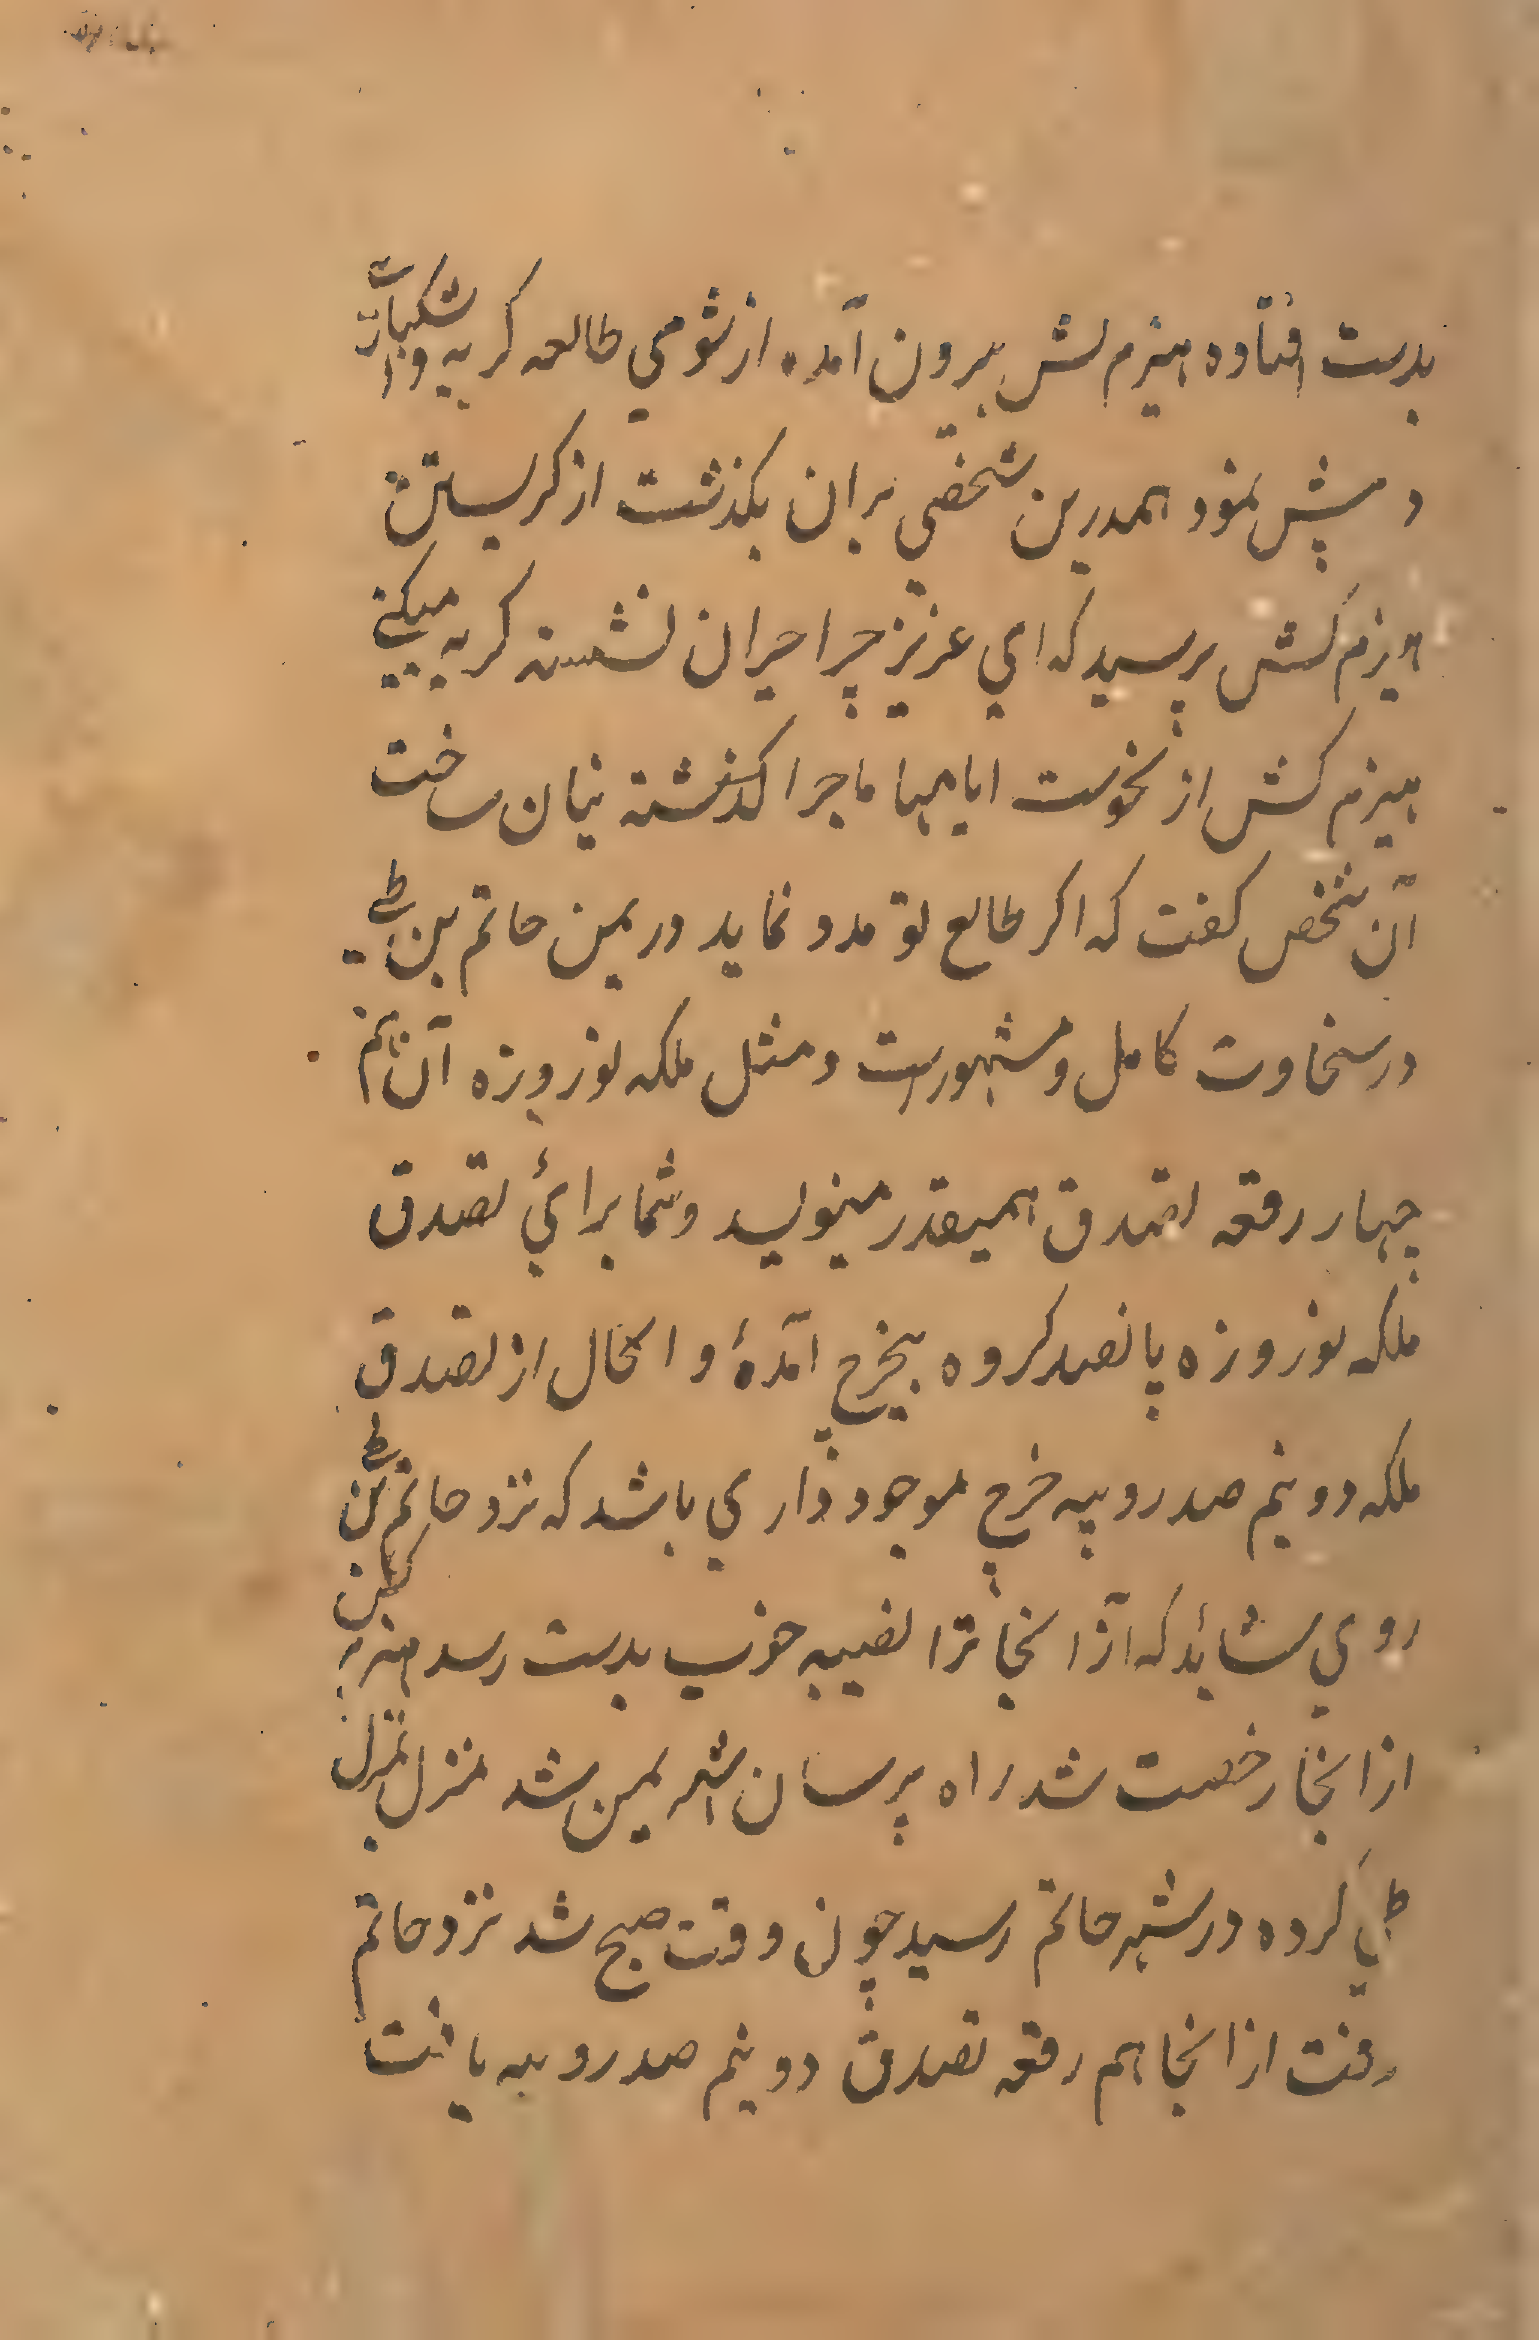 بدست افتاوه هیزم کش بیرون آمده از شومي طالعه کریه و اشکبارت
د مپش نمود همدرین شخصی بران بکذشت از کریستن
هیزم کش پرسید که اي عزیز چرا حیران نشسته کریه میکنے
هیزم کش از نخوست ایامها ماجرا کذشته بیان ساخت
آن شخص کفت که اکر طالع تو مدد نماید در یمن حاتم بن طے
در سخاوت کامل و مشهورست و مثل ملکه نوزروزه آن هم
چهار رقعه تصدق همیقدر مینویسد و شما برائي تصدق
ملکه نوزروزه پانصد کروه بیخرچ آمدۀ و الحال از تصدق
ملکه دو نیم صد روپیه خرچ موجود داري باشد که نزد حاتم بن طے
روي شائد که از آنجا ترا نصیبه خوب بدست رسد هیزم کش
از آنجا رخصت شد راه پرسان شهر یمن شد منزل بمنزل
طي کروه در شهر حاتم رسید چون وقت صبح شد نزد حاتم
رفت از آنجا هم رقعه تصدق دو نیم صد روپیه یافت